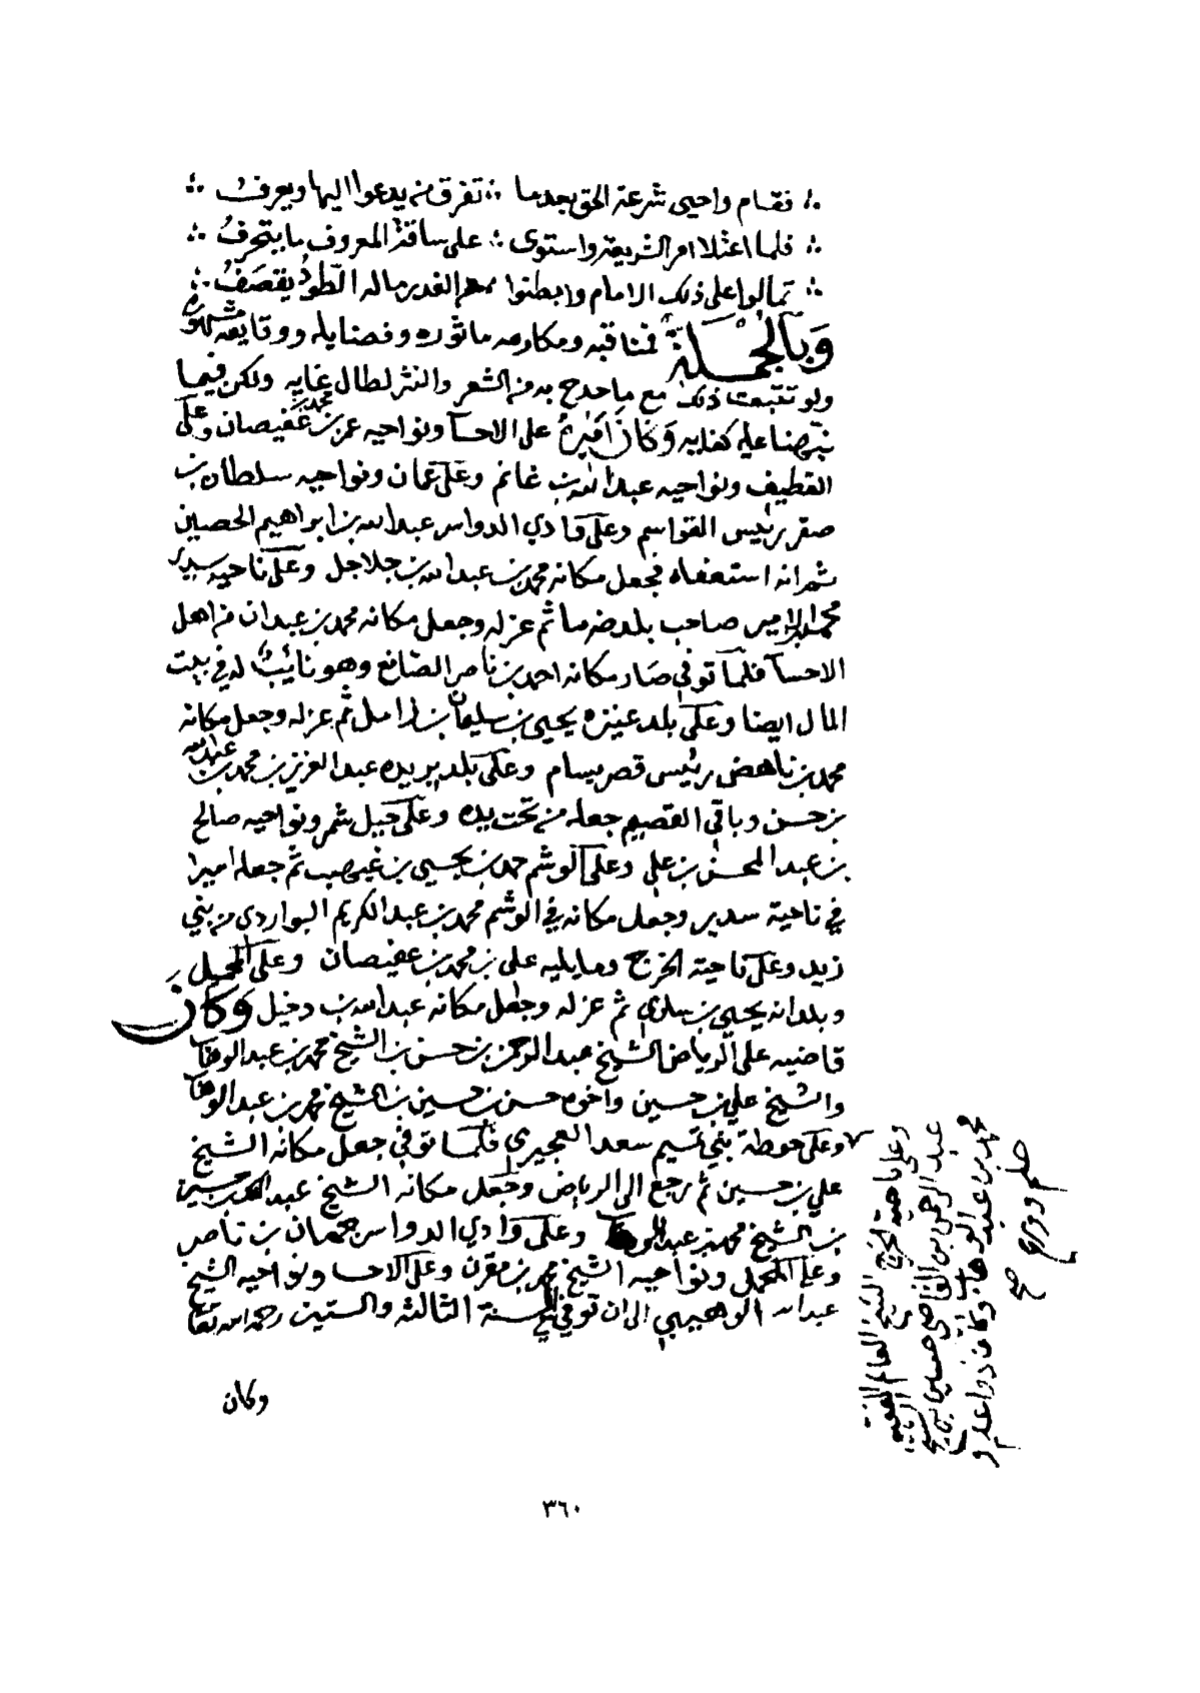 ∴ فقام واحيى شرعة الحق بعدما ∴ تفرق من يدعوا اليها ويعرف ∴
∴ فلما اعتلا امر الشريعة واستوى ∴ على ساقه المعروف ما يتحرف ∴
∴ تمالوا على ذلك الامام وابطنوا الغدر ماله الطود يقصف ∴
وبالجملة فمناقبه ومكارمه ماثوره وفضايله ووقايعه مشهوره
ولو تتبعت ذلك مع ما مدح به من الشعر والنثر لطال غايه ولكن فيما
نبهنا عليه كفايه وكان اميره على الاحسا ونواحيه عمر بن محمد بن عفيصان وعلى
القطيف ونواحيه عبدالله بن غانم وعلى عمان ونواحيه سلطان بن
صقر رئيس القواسم وعلى وادي الدواسر عبدالله بن ابراهيم الحصين
ثم انه استعفاه فجعل مكانه محمد بن عبدالله بن جلاجل وعلى ناحيه سدير
صاحب بلد ضرما ثم عزله وجعل مكانه محمد بن عبدان من اهل
الاحسا فلما توفي صار مكانه احمد بن ناصر الصانع وهو نائب له في بيت
المال ايضا وعلى بلد عنيزه يحيى بن سليمان بن زامل ثم عزله وجعل مكانه
محمد بن ناهض رئيس قصر بسام وعلى بلد بريده عبدالعزيز بن محمد بن عبدالله
بن حسن وباقي القصيم جعله من تحت يده وعلى جبل شمر ونواحيه صالح
بن عبدالمحسن بن علي وعلى الوشم حمد بن يحيى بن غيهب ثم جعله اميرا
في ناحية سدير وجعل مكانه في الوشم محمد بن عبدالكريم البواردي من بني
زيد وعلى ناحية الخرج وما يليه علي بن محمد بن عفيصان وعلى المحمل
وبلدانه يحيى بن ثم عزله وجعل مكانه عبدالله بن دخيل وكان
قاضيه على الرياض الشيخ عبدالرحمن بن حسن بن الشيخ محمد بن عبدالوهاب
والشيخ علي بن حسين واخوه حسن بن حسين بن الشيخ محمد بن عبدالوهاب
وعلى حوطة بني تميم سعد العجيري فلما توفي جعل مكانه الشيخ
علي بن حسين ثم رجع الى الرياض وجعل مكانه الشيخ عبدالملك بن حسين
بن الشيخ محمد بن عبدالوهاب وعلى وادي الدواسر جمعان بن ناصر
وعلى المحمل ونواحيه الشيخ محمد بن مقرن وعلى الاحسا ونواحيه الشيخ
عبدالله الوهيبي الى ان توفي في سنة الثالثة والستين رحمه الله تعالى
وعلى ناحية الخرج الشيخ العالم الفقيه
عبدالرحمن بن القاضي حسين بن الشيخ
محمد بن عبدالوهاب وكان ذوا علم و
حلم وورع صح
وكان
٣٦٠